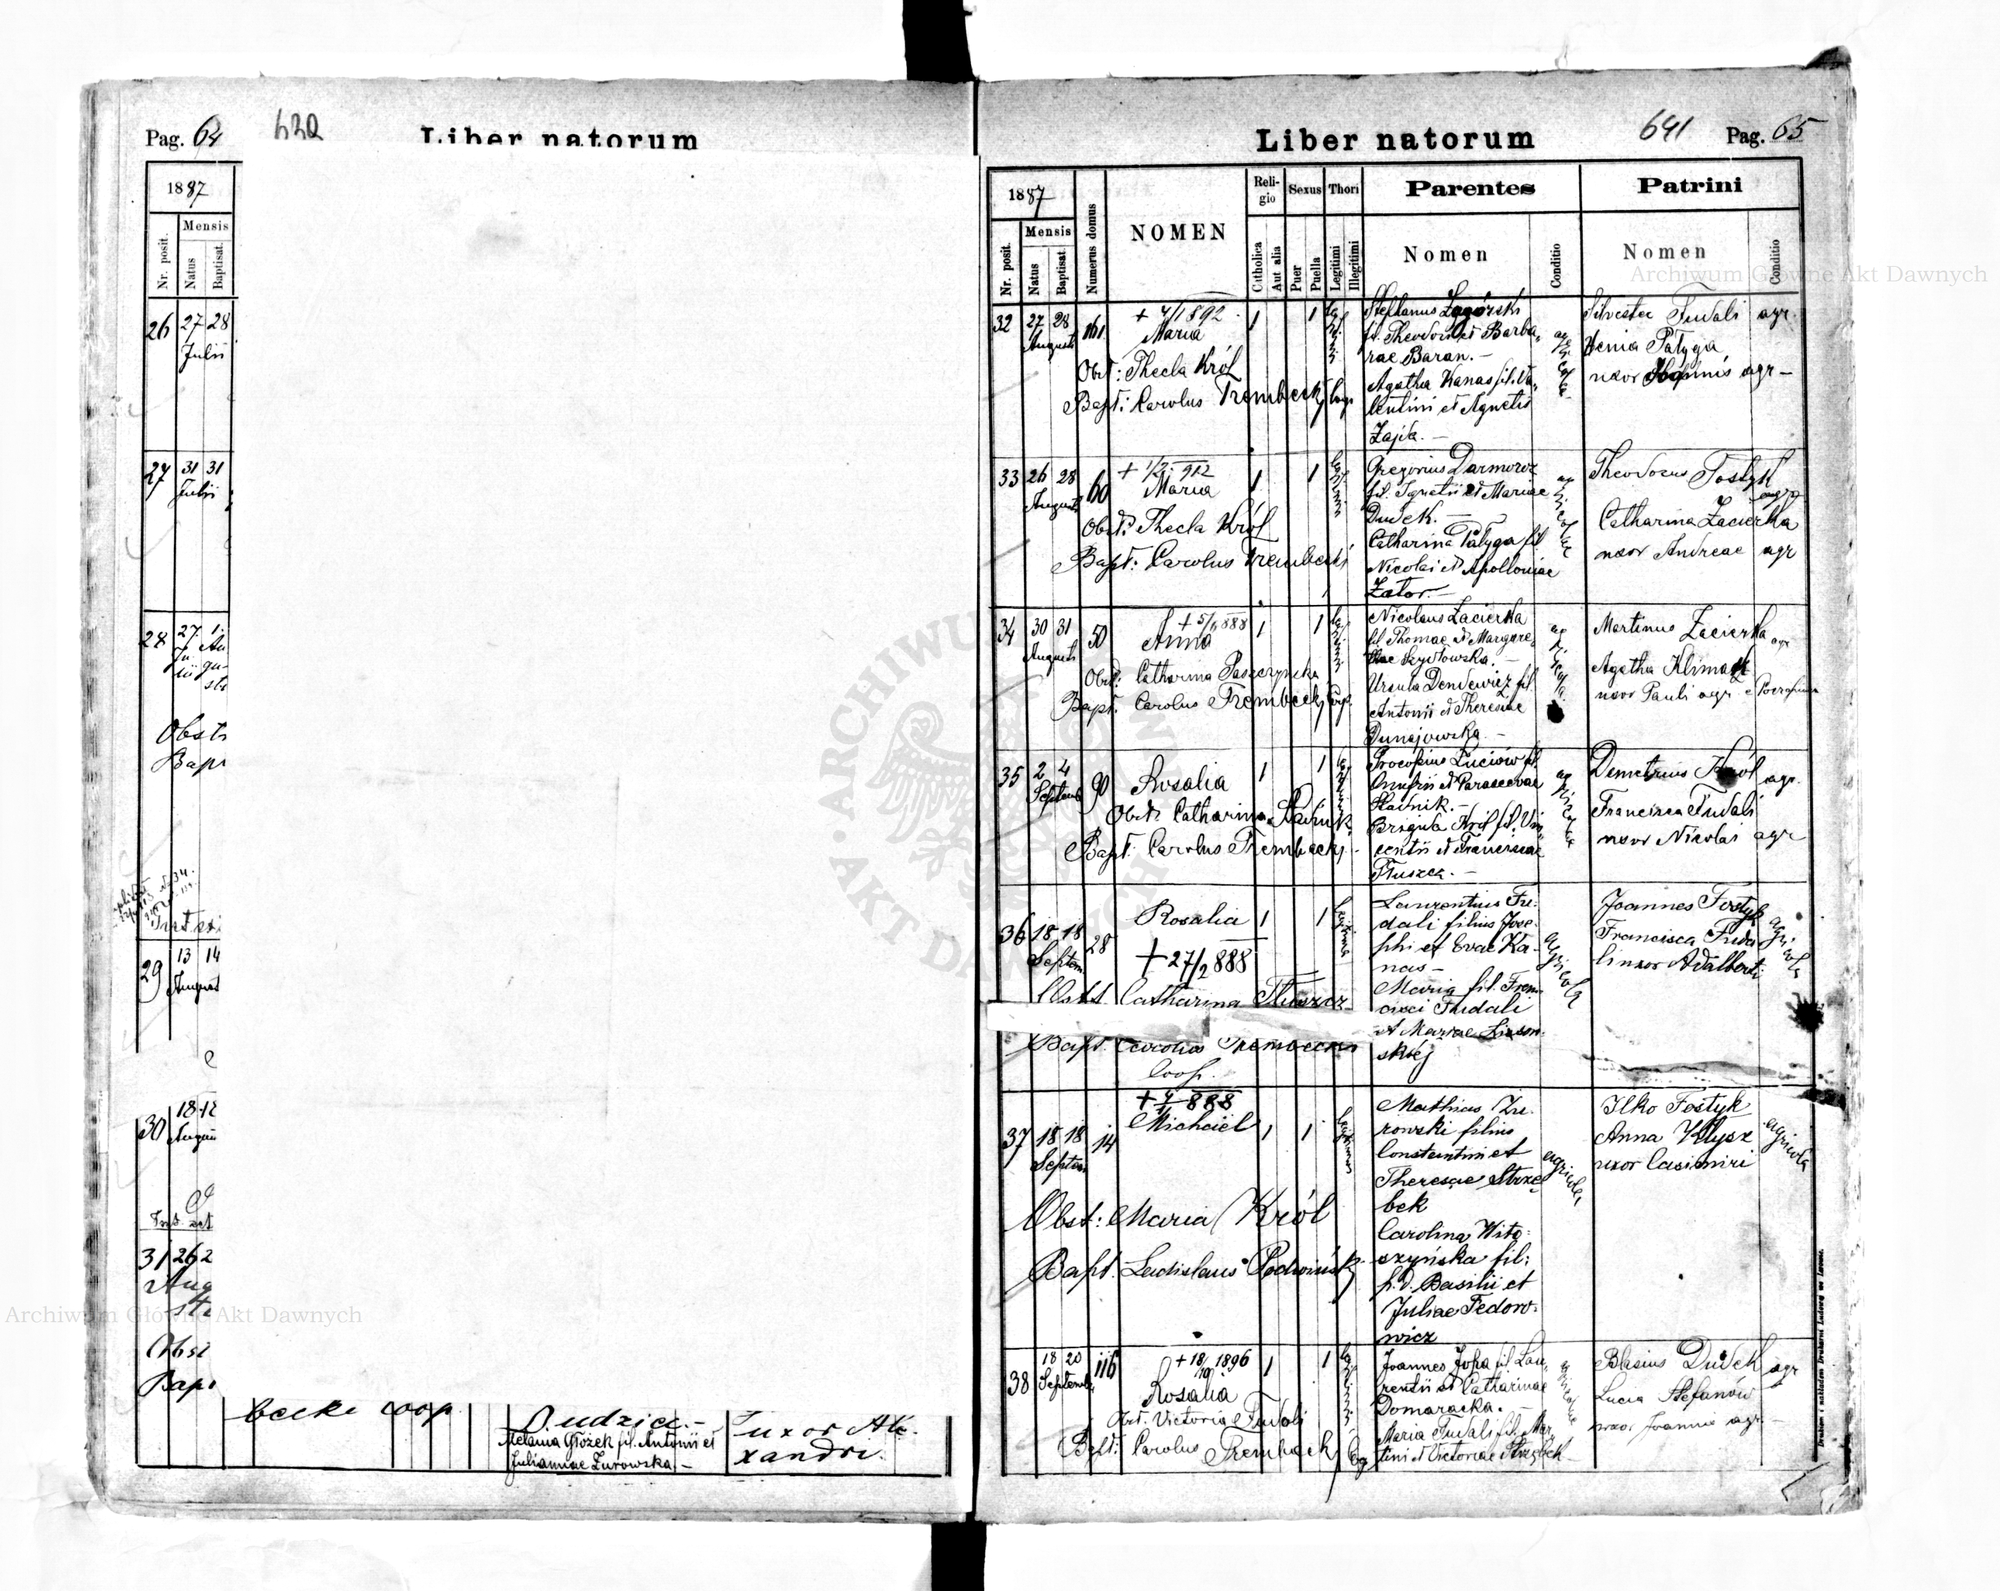 Pag. 64
Liber natorum
1887
Mensis
Nr. posit.
Natus
Baptisat.
26 27 28
Julii
27 31 31
Julii
28 27 1
Ju Au
lii gu
sti
Obst
Bap
29 13 14
August
30 18 12
31 26 2
Aug
Obst
Bap
becki coop
Dudzicz.-
Melania Głożek fil. Antonii et
Juliannae Żurowska.-
uxor Ale
xandri.
Liber natorum
641 Pag. 65
1887
Nr. posit.
Mensis
Natus
Baptisat.
Numerus domus
NOMEN
Religio
Catholica
Aut alia
Sexus
Puer
Puella
Thori
Legitimi
Illegitimi
Parentes
Nomen
Conditio
Patrini
Nomen
Conditio
32 27 28 161
Augusti
+ 4/1892
Maria
1 1
Obst: Thecla Król
Bapt: Carolus Trembecki Coop
Stephanus Zagórski
fil. Theodori et Barba-
rae Baran.-
Agatha Kanas fil. Va-
lentini et Agnetis
Zajda.-
agricolae
Silvester Fudali agr.
Xenia Patyga
uxor Joannis agr-
33 26 28 60
Augusti
+ 1/2 912
Maria
1 1
Obst: Thecla Król
Bapt: Carolus Trembecki
Gregorius Darmoroz
fil. Ignatii et Mariae
Dudek.-
Catharina Patyga fil
Nicolai et Apolloniae
Zator.-
agricolae
Theodorus Fostyk
agr
Catharina Zacierka
uxor Andreae agr
34 30 31 50
Augusti
+ 5/ 888
Anna
1 1
Obst: Catharina Paszczynska
Bapt: Carolus Trembecki Coop.
Nicolaus Zacierka
fil. Thomae et Margare-
tae Szydłowska.-
Ursula Deńdewicz fil.
Antonii et Theresiae
Dunajowska.-
agricolae
Martinus Zacierka agr
Agatha Klimasz
uxor Pauli agr
35 2 4 90
Septemb
Rosalia
1 1
Obst: Catharina Sławnik
Bapt: Carolus Trembecki
Procopius Łuciów fil
Onufrii et Parascevae
Sławnik.-
Brigida Król fil. Vin-
centii et Franciscae
Tłuszcz.-
agricolae
Demetrius Król agr.
Francisca Fudali
uxor Nicolai agr
36 18 18 28
Septem
Rosalia
1 1
+ 27/2 888
Obst Catharina Tłuszcz
Bapt. Carolus Trembecki
Coop.
Laurentius Fu-
dali filius Jose-
phi et Evae Ka-
nas-
Maria fil. Fran-
cisci Fudali
et Mariae Lison-
skiej
agricola
Joannes Fostyk
Francisca Fuda
li uxor Adalberti
agricola
37 18 18 14
Septem
+ 4/ 888
Michael
1 1
Obst: Maria Król
Bapt. Ladislaus Podwiński
Mathias Żu-
rowski filius
Constantini et
Theresae Strze-
bek
Carolina Wito-
szyńska fil:
p.d. Basilii et
Juliae Fedoro-
wicz
agricola
Ilko Fostyk
Anna Kłysz
uxor Casimiri
agricola
38 18 20 116
Septemb
+ 18/10 1896
Rosalia
1 1
Obst. Victoria Fudali
Bapt: Carolus Trembecki Coop
Joannes Jopa fil. Lau-
rentii et Catharinae
Domaracka.-
Maria Fudali fil. Mar-
tini et Victoriae Strzębek-
agricolae
Blasius Dudek agr
Lucia Stefanów
uxor Joannis agr.-
Archiwum Główne Akt Dawnych
Archiwum Główne Akt Dawnych